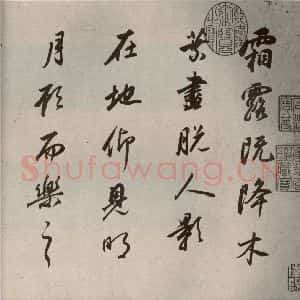 霜露既降木
葉盡脱人影
在地仰見明
月顧而樂之
Shufawang.CN